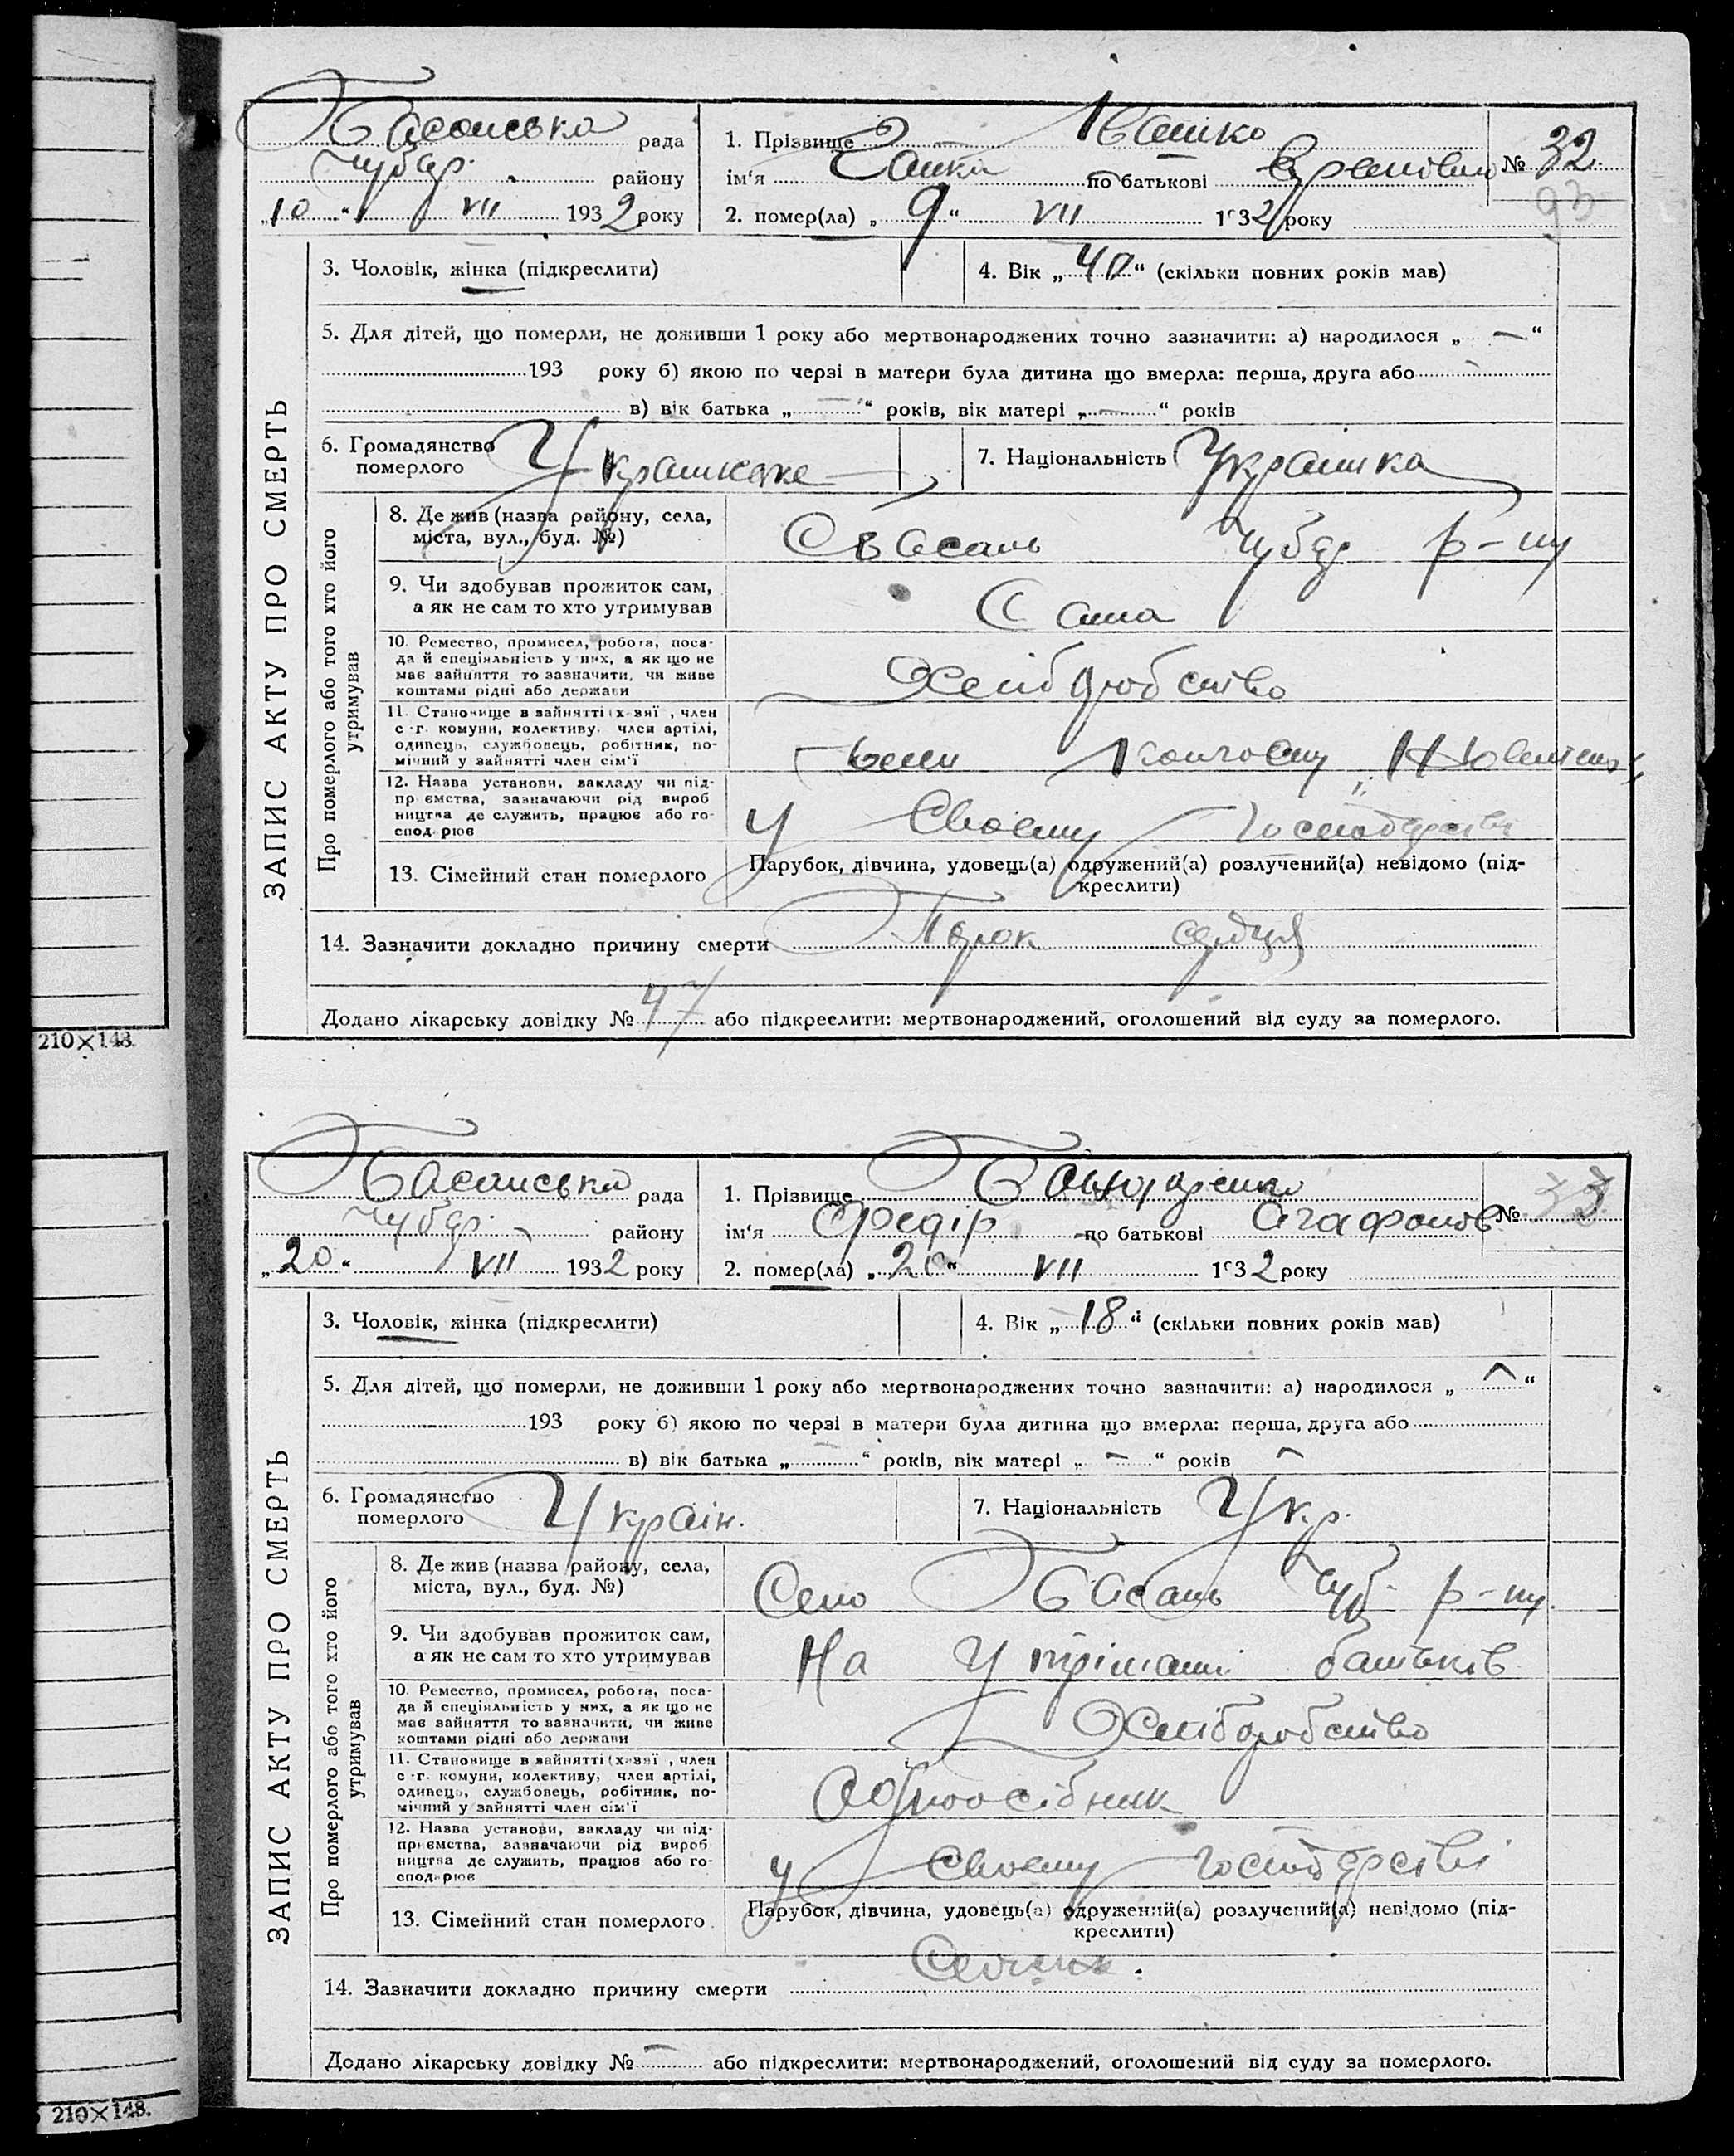 210×148.
210×148.
Басанська рада
Чубар. району
„10“ VII 1932 року
1. Прізвище Івашко
ім‘я по батькові
№ 32
93
2. помер(ла) „9“ VII 1932 року
ЗАПИС АКТУ ПРО СМЕРТЬ
3. Чоловік, жінка (підкреслити)
4. Вік „40“ (скільки повних років мав)
5. Для дітей, що померли, не доживши 1 року або мертвонароджених точно зазначити: а) народилося „ — “
193 року б) якою по черзі в матери була дитина що вмерла: перша, друга або
в) вік батька „ — “ років, вік матері „ — “ років
6. Громадянство
померлого
7. Національність Українка
Про померлого або того хто його
утримував
8. Де жив (назва району, села,
міста, вул., буд. №)
С Басань Чубар р-ну
9. Чи здобував прожиток сам,
а як не сам то хто утримував
Сама
10. Ремество, промисел, робота, поса-
да й спеціяльність у них, а як що не
має зайняття то зазначити, чи живе
коштами рідні або держави
Хліборобство
11. Становище в зайнятті (х-зяї, член
с-г. комуни, колективу, член артілі,
одинець, службовець, робітник, по-
мічний у зайнятті член сім‘ї
12. Назва установи, закладу чи під-
приємства, зазначаючи рід вироб
ництва де служить, працює або го-
сподарює
У Своєму господарстві
13. Сімейний стан померлого
Парубок, дівчина, удовець(а) одружений(а) розлучений(а) невідомо (під-
креслити)
14. Зазначити докладно причину смерти Порок серця
Додано лікарську довідку № 47 або підкреслити: мертвонароджений, оголошений від суду за померлого.
Басанська рада
Чубар. району
„20“ VII 1932 року
1. Прізвище
ім‘я Федір по батькові Агафонов
№ 33
2. помер(ла) „20“ VII 1932 року
ЗАПИС АКТУ ПРО СМЕРТЬ
3. Чоловік, жінка (підкреслити)
4. Вік „18“ (скільки повних років мав)
5. Для дітей, що померли, не доживши 1 року або мертвонароджених точно зазначити: а) народилося „ “
193 року б) якою по черзі в матери була дитина що вмерла: перша, друга або
в) вік батька „ — “ років, вік матері „ — “ років
6. Громадянство
померлого
Україн.
7. Національність Укр.
Про померлого або того хто його
утримував
8. Де жив (назва району, села,
міста, вул., буд. №)
Село Басань Чуб. р-ну.
9. Чи здобував прожиток сам,
а як не сам то хто утримував
На утримані батьків
10. Ремество, промисел, робота, поса-
да й спеціяльність у них, а як що не
має зайняття то зазначити, чи живе
коштами рідні або держави
Хліборобство
11. Становище в зайнятті (х-зяї, член
с-г. комуни, колективу, член артілі,
одинець, службовець, робітник, по-
мічний у зайнятті член сім‘ї
Одноосібник
12. Назва установи, закладу чи під-
приємства, зазначаючи рід вироб
ництва де служить, працює або го-
сподарює
у Своєму господарстві
13. Сімейний стан померлого
Парубок, дівчина, удовець(а) одружений(а) розлучений(а) невідомо (під-
креслити)
14. Зазначити докладно причину смерти
Додано лікарську довідку № — або підкреслити: мертвонароджений, оголошений від суду за померлого.